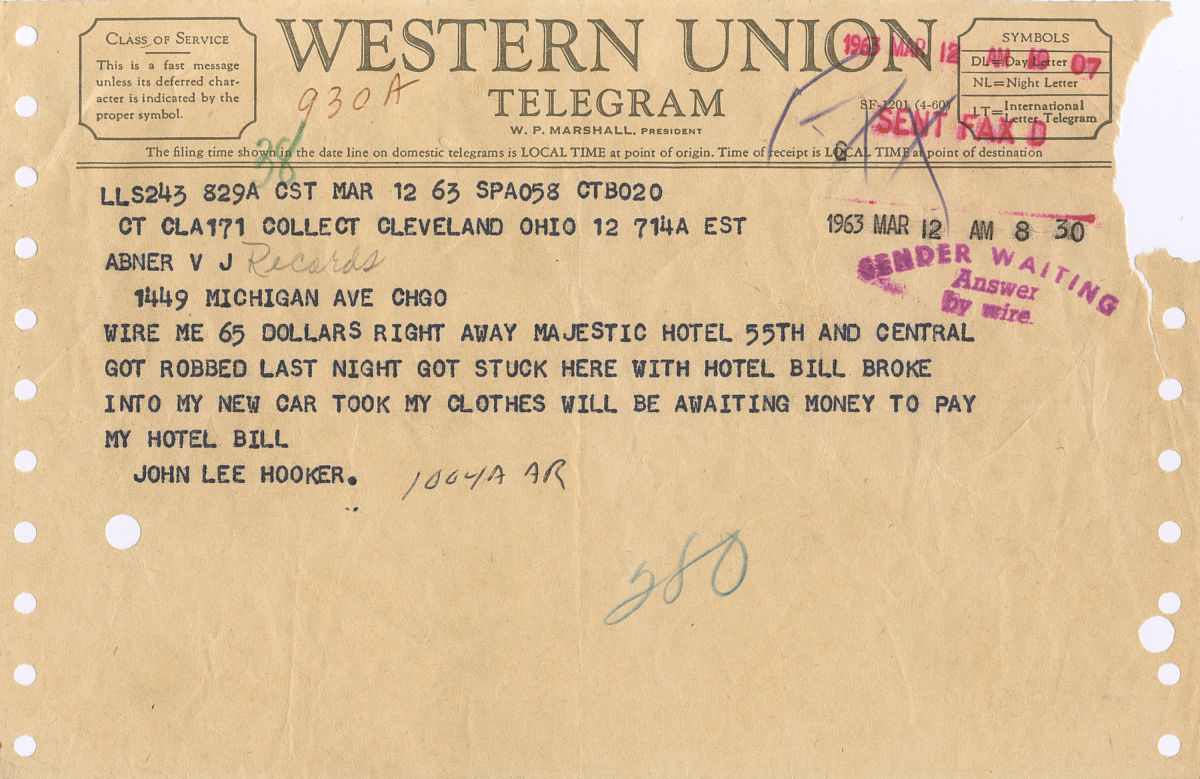 CLASS OF SERVICE
This is a fast message
unless its deferred char-
acter is indicated by the
proper symbol.
WESTERN UNION
TELEGRAM
W. P. MARSHALL, PRESIDENT
1963 MAR 12 AM 10 07
SF-1201 (4-60)
SENT FAX D
SYMBOLS
DL=Day Letter
NL=Night Letter
LT=International Letter Telegram
930A
38
The filing time shown in the date line on domestic telegrams is LOCAL TIME at point of origin. Time of receipt is LOCAL TIME at point of destination
LLS243 829A CST MAR 12 63 SPA058 CTB020
CT CLA171 COLLECT CLEVELAND OHIO 12 714A EST
1963 MAR 12 AM 8 30
ABNER V J Records
SENDER WAITING
Answer
by wire.
1449 MICHIGAN AVE CHGO
WIRE ME 65 DOLLARS RIGHT AWAY MAJESTIC HOTEL 55TH AND CENTRAL
GOT ROBBED LAST NIGHT GOT STUCK HERE WITH HOTEL BILL BROKE
INTO MY NEW CAR TOOK MY CLOTHES WILL BE AWAITING MONEY TO PAY
MY HOTEL BILL
JOHN LEE HOOKER.
1004A AR
380